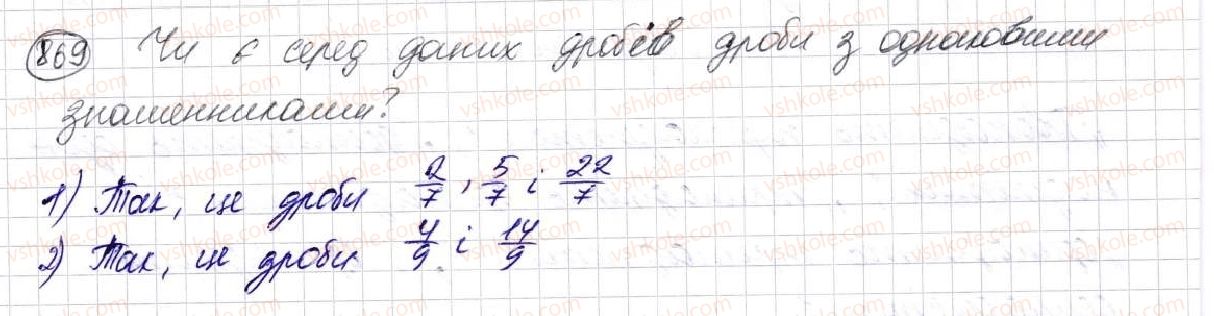 869 Чи є серед даних дробів дроби з однаковими
знаменниками?
1) Так, це дроби 2/7, 5/7 і 22/7
2) Так, це дроби 4/9 і 14/9